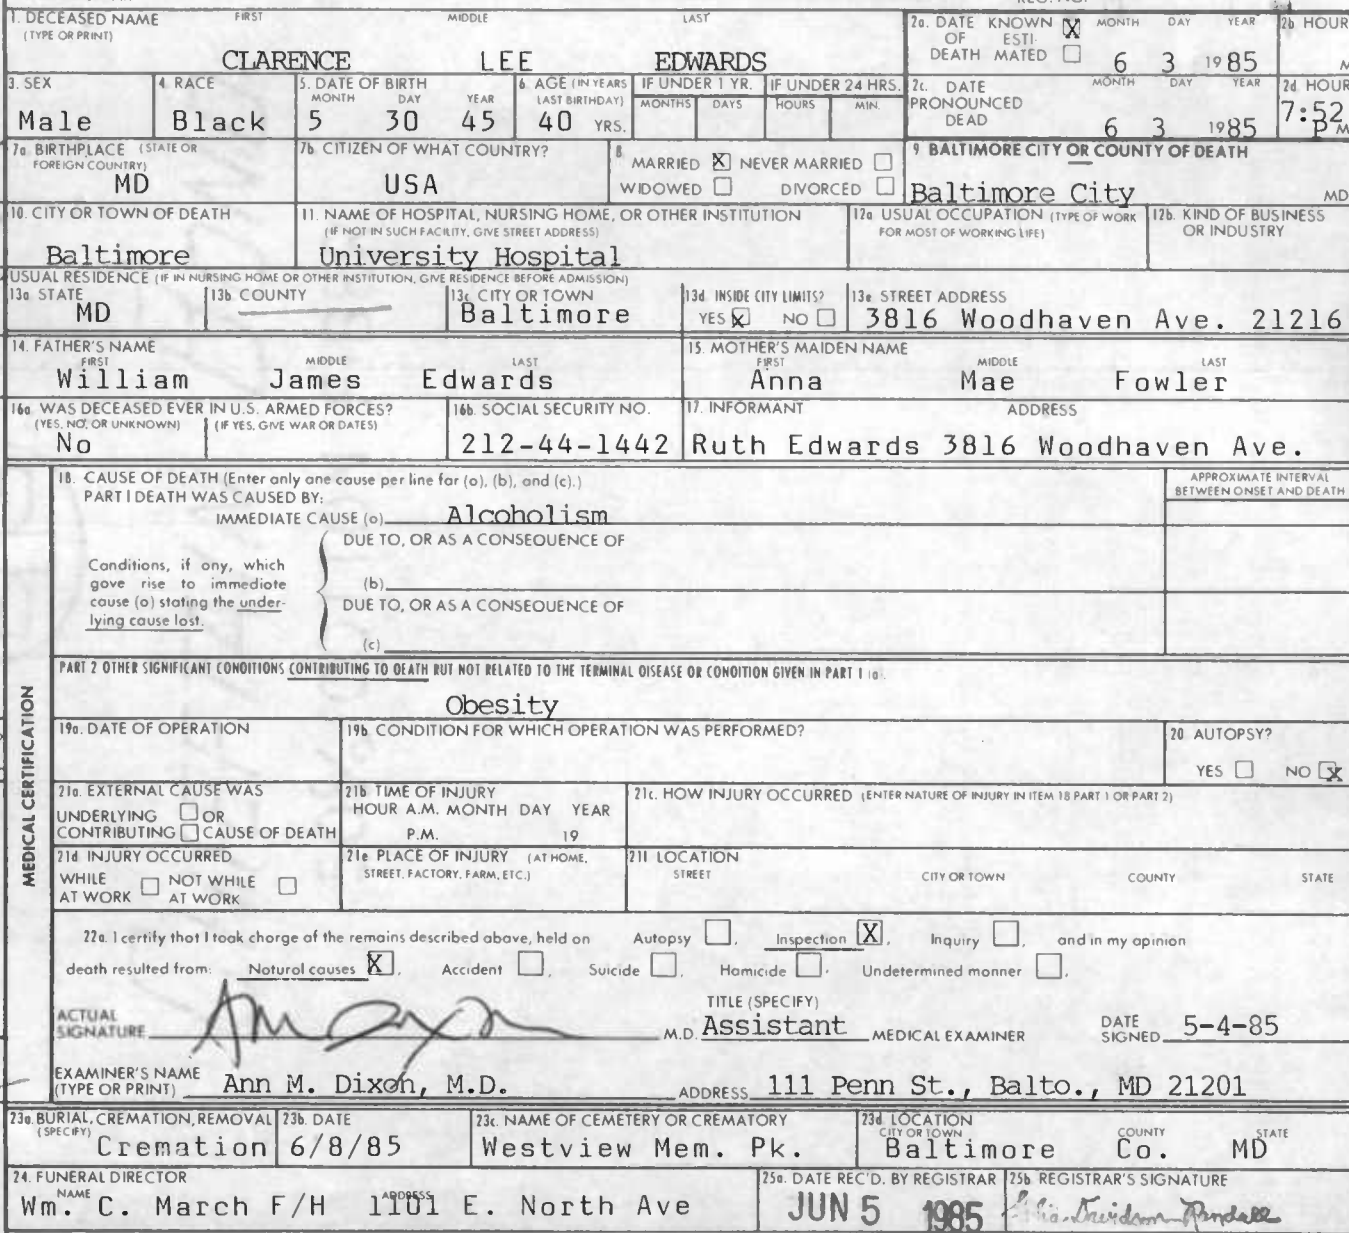 1. DECEASED NAME FIRST MIDDLE LAST
(TYPE OR PRINT)
CLARENCE LEE EDWARDS
2a. DATE KNOWN X MONTH DAY YEAR
OF ESTI-
DEATH MATED 6 3 1985
2b HOUR
M
3. SEX
Male
4. RACE
Black
5. DATE OF BIRTH
MONTH DAY YEAR
5 30 45
6. AGE (IN YEARS
LAST BIRTHDAY)
40 YRS.
IF UNDER 1 YR.
MONTHS DAYS
IF UNDER 24 HRS.
HOURS MIN.
2c. DATE MONTH DAY YEAR
PRONOUNCED
DEAD 6 3 1985
2d HOUR
7:52
P M
7a BIRTHPLACE (STATE OR
FOREIGN COUNTRY)
MD
7b. CITIZEN OF WHAT COUNTRY?
USA
8
MARRIED X NEVER MARRIED
WIDOWED DIVORCED
9 BALTIMORE CITY OR COUNTY OF DEATH
Baltimore City MD
10. CITY OR TOWN OF DEATH
Baltimore
11. NAME OF HOSPITAL, NURSING HOME, OR OTHER INSTITUTION
(IF NOT IN SUCH FACILITY, GIVE STREET ADDRESS)
University Hospital
12a USUAL OCCUPATION (TYPE OF WORK
FOR MOST OF WORKING LIFE)
12b. KIND OF BUSINESS
OR INDUSTRY
USUAL RESIDENCE (IF IN NURSING HOME OR OTHER INSTITUTION, GIVE RESIDENCE BEFORE ADMISSION)
13a STATE
MD
13b COUNTY
13c CITY OR TOWN
Baltimore
13d INSIDE CITY LIMITS?
YES X NO
13e STREET ADDRESS
3816 Woodhaven Ave. 21216
14. FATHER'S NAME
FIRST MIDDLE LAST
William James Edwards
15. MOTHER'S MAIDEN NAME
FIRST MIDDLE LAST
Anna Mae Fowler
16a WAS DECEASED EVER IN U.S. ARMED FORCES?
(YES, NO, OR UNKNOWN) (IF YES, GIVE WAR OR DATES)
No
16b. SOCIAL SECURITY NO.
212-44-1442
17. INFORMANT ADDRESS
Ruth Edwards 3816 Woodhaven Ave.
MEDICAL CERTIFICATION
18. CAUSE OF DEATH (Enter only one cause per line for (a), (b), and (c).)
PART I DEATH WAS CAUSED BY:
APPROXIMATE INTERVAL
BETWEEN ONSET AND DEATH
IMMEDIATE CAUSE (a) Alcoholism
DUE TO, OR AS A CONSEQUENCE OF
Conditions, if any, which
gave rise to immediate
cause (a) stating the under-
lying cause last.
(b)
DUE TO, OR AS A CONSEQUENCE OF
(c)
PART 2 OTHER SIGNIFICANT CONDITIONS CONTRIBUTING TO DEATH BUT NOT RELATED TO THE TERMINAL DISEASE OR CONDITION GIVEN IN PART 1 (a).
Obesity
19a. DATE OF OPERATION
19b CONDITION FOR WHICH OPERATION WAS PERFORMED?
20 AUTOPSY?
YES NO X
21a. EXTERNAL CAUSE WAS
UNDERLYING OR
CONTRIBUTING CAUSE OF DEATH
21b TIME OF INJURY
HOUR A.M. MONTH DAY YEAR
P.M. 19
21c. HOW INJURY OCCURRED (ENTER NATURE OF INJURY IN ITEM 18 PART 1 OR PART 2)
21d INJURY OCCURRED
WHILE NOT WHILE
AT WORK AT WORK
21e PLACE OF INJURY (AT HOME,
STREET, FACTORY, FARM, ETC.)
21f LOCATION
STREET CITY OR TOWN COUNTY STATE
22a. I certify that I took charge of the remains described above, held on Autopsy , Inspection X , Inquiry , and in my opinion
death resulted from: Natural causes X , Accident , Suicide , Homicide , Undetermined manner .
ACTUAL
SIGNATURE AM Dixon M.D.
TITLE (SPECIFY)
Assistant MEDICAL EXAMINER
DATE
SIGNED 5-4-85
EXAMINER'S NAME
(TYPE OR PRINT) Ann M. Dixon, M.D. ADDRESS 111 Penn St., Balto., MD 21201
23a. BURIAL, CREMATION, REMOVAL
(SPECIFY)
Cremation
23b. DATE
6/8/85
23c. NAME OF CEMETERY OR CREMATORY
Westview Mem. Pk.
23d LOCATION
CITY OR TOWN COUNTY STATE
Baltimore Co. MD
24. FUNERAL DIRECTOR
NAME ADDRESS
Wm. C. March F/H 1101 E. North Ave
25a. DATE REC'D. BY REGISTRAR
JUN 5 1985
25b. REGISTRAR'S SIGNATURE
Davidson Randall